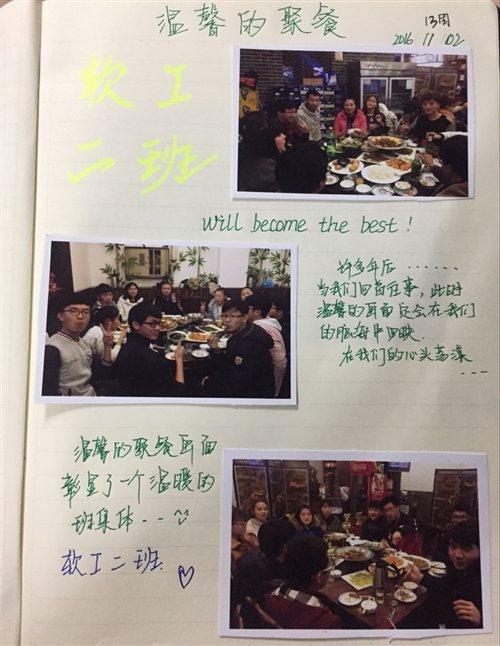 温馨的聚餐
13周
2016 11 02
软工
二班
will become the best!
许多年后......
当我们回首往事,此时
温馨的画面定会在我们
的脑海中回映
在我们的心头荡漾
---
温馨的聚餐画面
彰显了一个温暖的
班集体..
软工二班